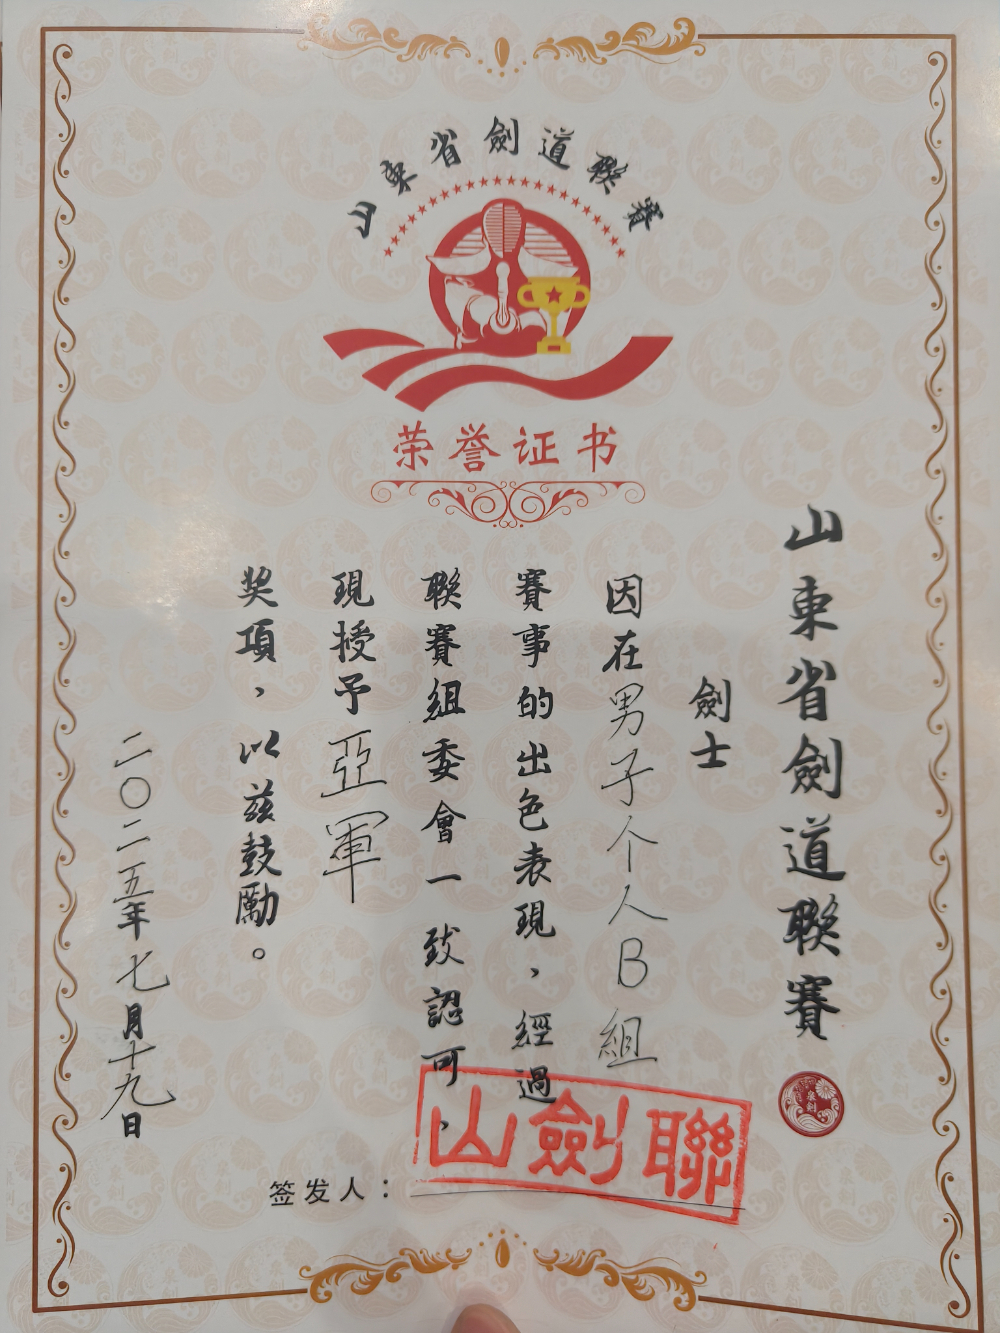 山東省劍道聯賽
荣誉证书
山東省劍道聯賽
劍士
因在男子个人B組
賽事的出色表現，經過
聯賽組委會一致認可，
現授予亞軍
奬項，以兹鼓勵。
二〇二五年七月十九日
签发人：
山劍聯